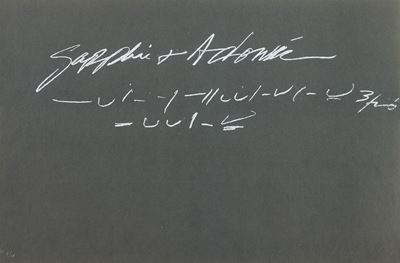 Sapphic + Adonic
— ∪ | — — | — || ∪ ∪ | — ∪ | — ∪
— ∪ ∪ | — ∪